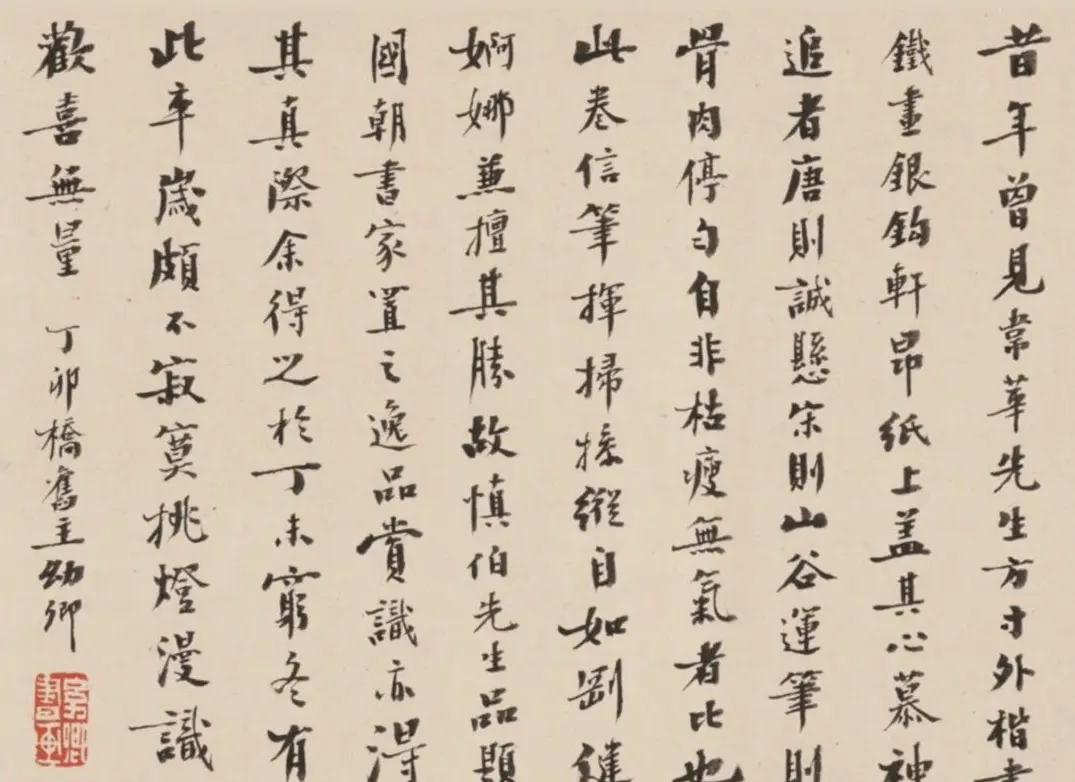 昔年曾見韋華先生方寸外楷書
鐵畫銀鈎軒昂紙上蓋其心慕神
追者唐則誠懸宋則山谷運筆則
骨肉停勻自非枯瘦無氣者比也
此卷信筆揮掃操縱自如剛健
婀娜兼擅其勝故慎伯先生品題
國朝書家置之逸品賞識亦得
其真際余得之於丁未窮冬有
此卒歲頗不寂寞挑燈漫識
歡喜無量 丁卯橋舊主幼卿